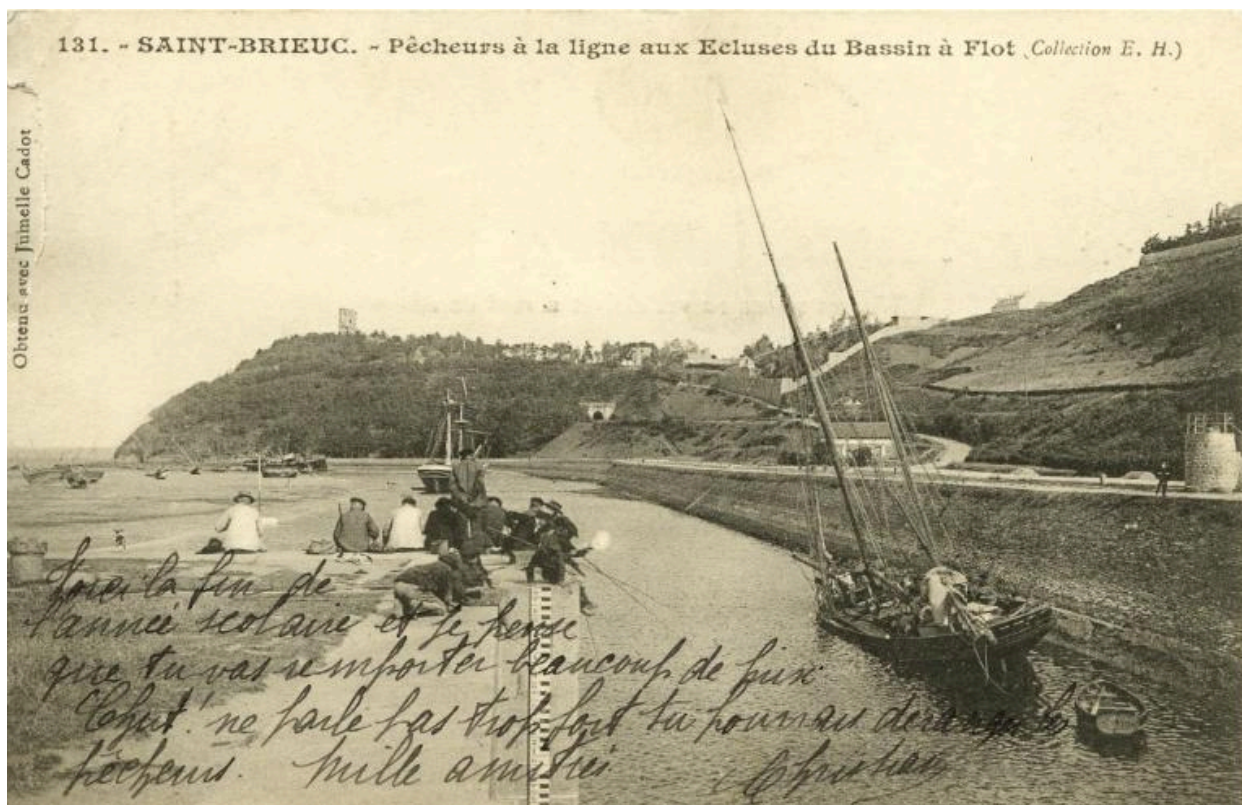 131. - SAINT-BRIEUC. - Pêcheurs à la ligne aux Ecluses du Bassin à Flot (Collection E. H.)
Obtenu avec Jumelle Cadot
Voici la fin de
l'année scolaire et je pense
que tu vas remporter beaucoup de prix
Chut! ne parle pas trop fort tu pourrais déranger les
pêcheurs. Mille amitiés
Christian